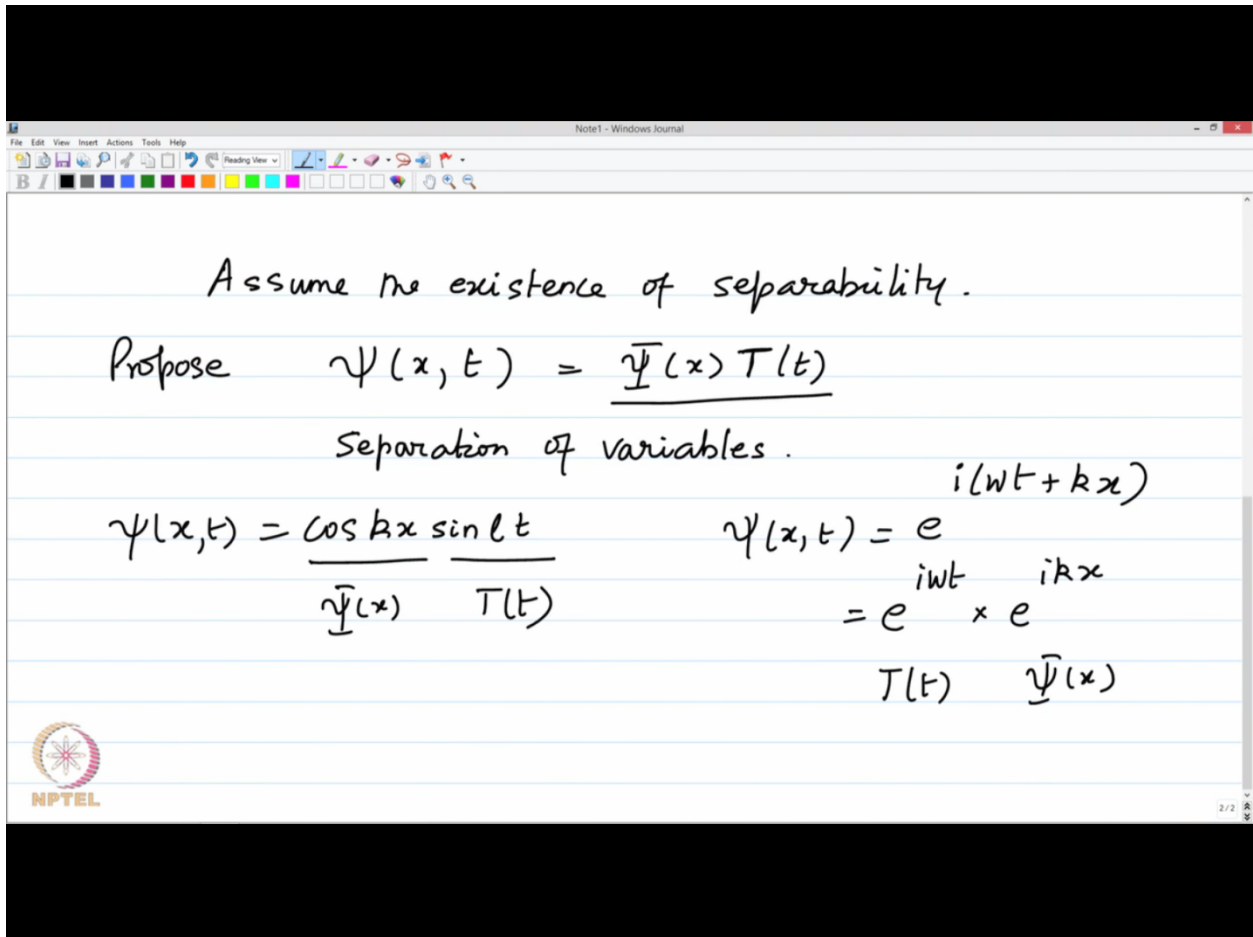 Note1 - Windows Journal
File Edit View Insert Actions Tools Help
Reading View
B I
Assume the existence of separability.
Propose ψ(x, t) = Ψ(x) T(t)
Separation of variables.
ψ(x,t) = cos kx sin lt
Ψ(x) T(t)
ψ(x, t) = e^{i(wt + kx)}
= e^{iwt} × e^{ikx}
T(t) Ψ(x)
NPTEL
2/2